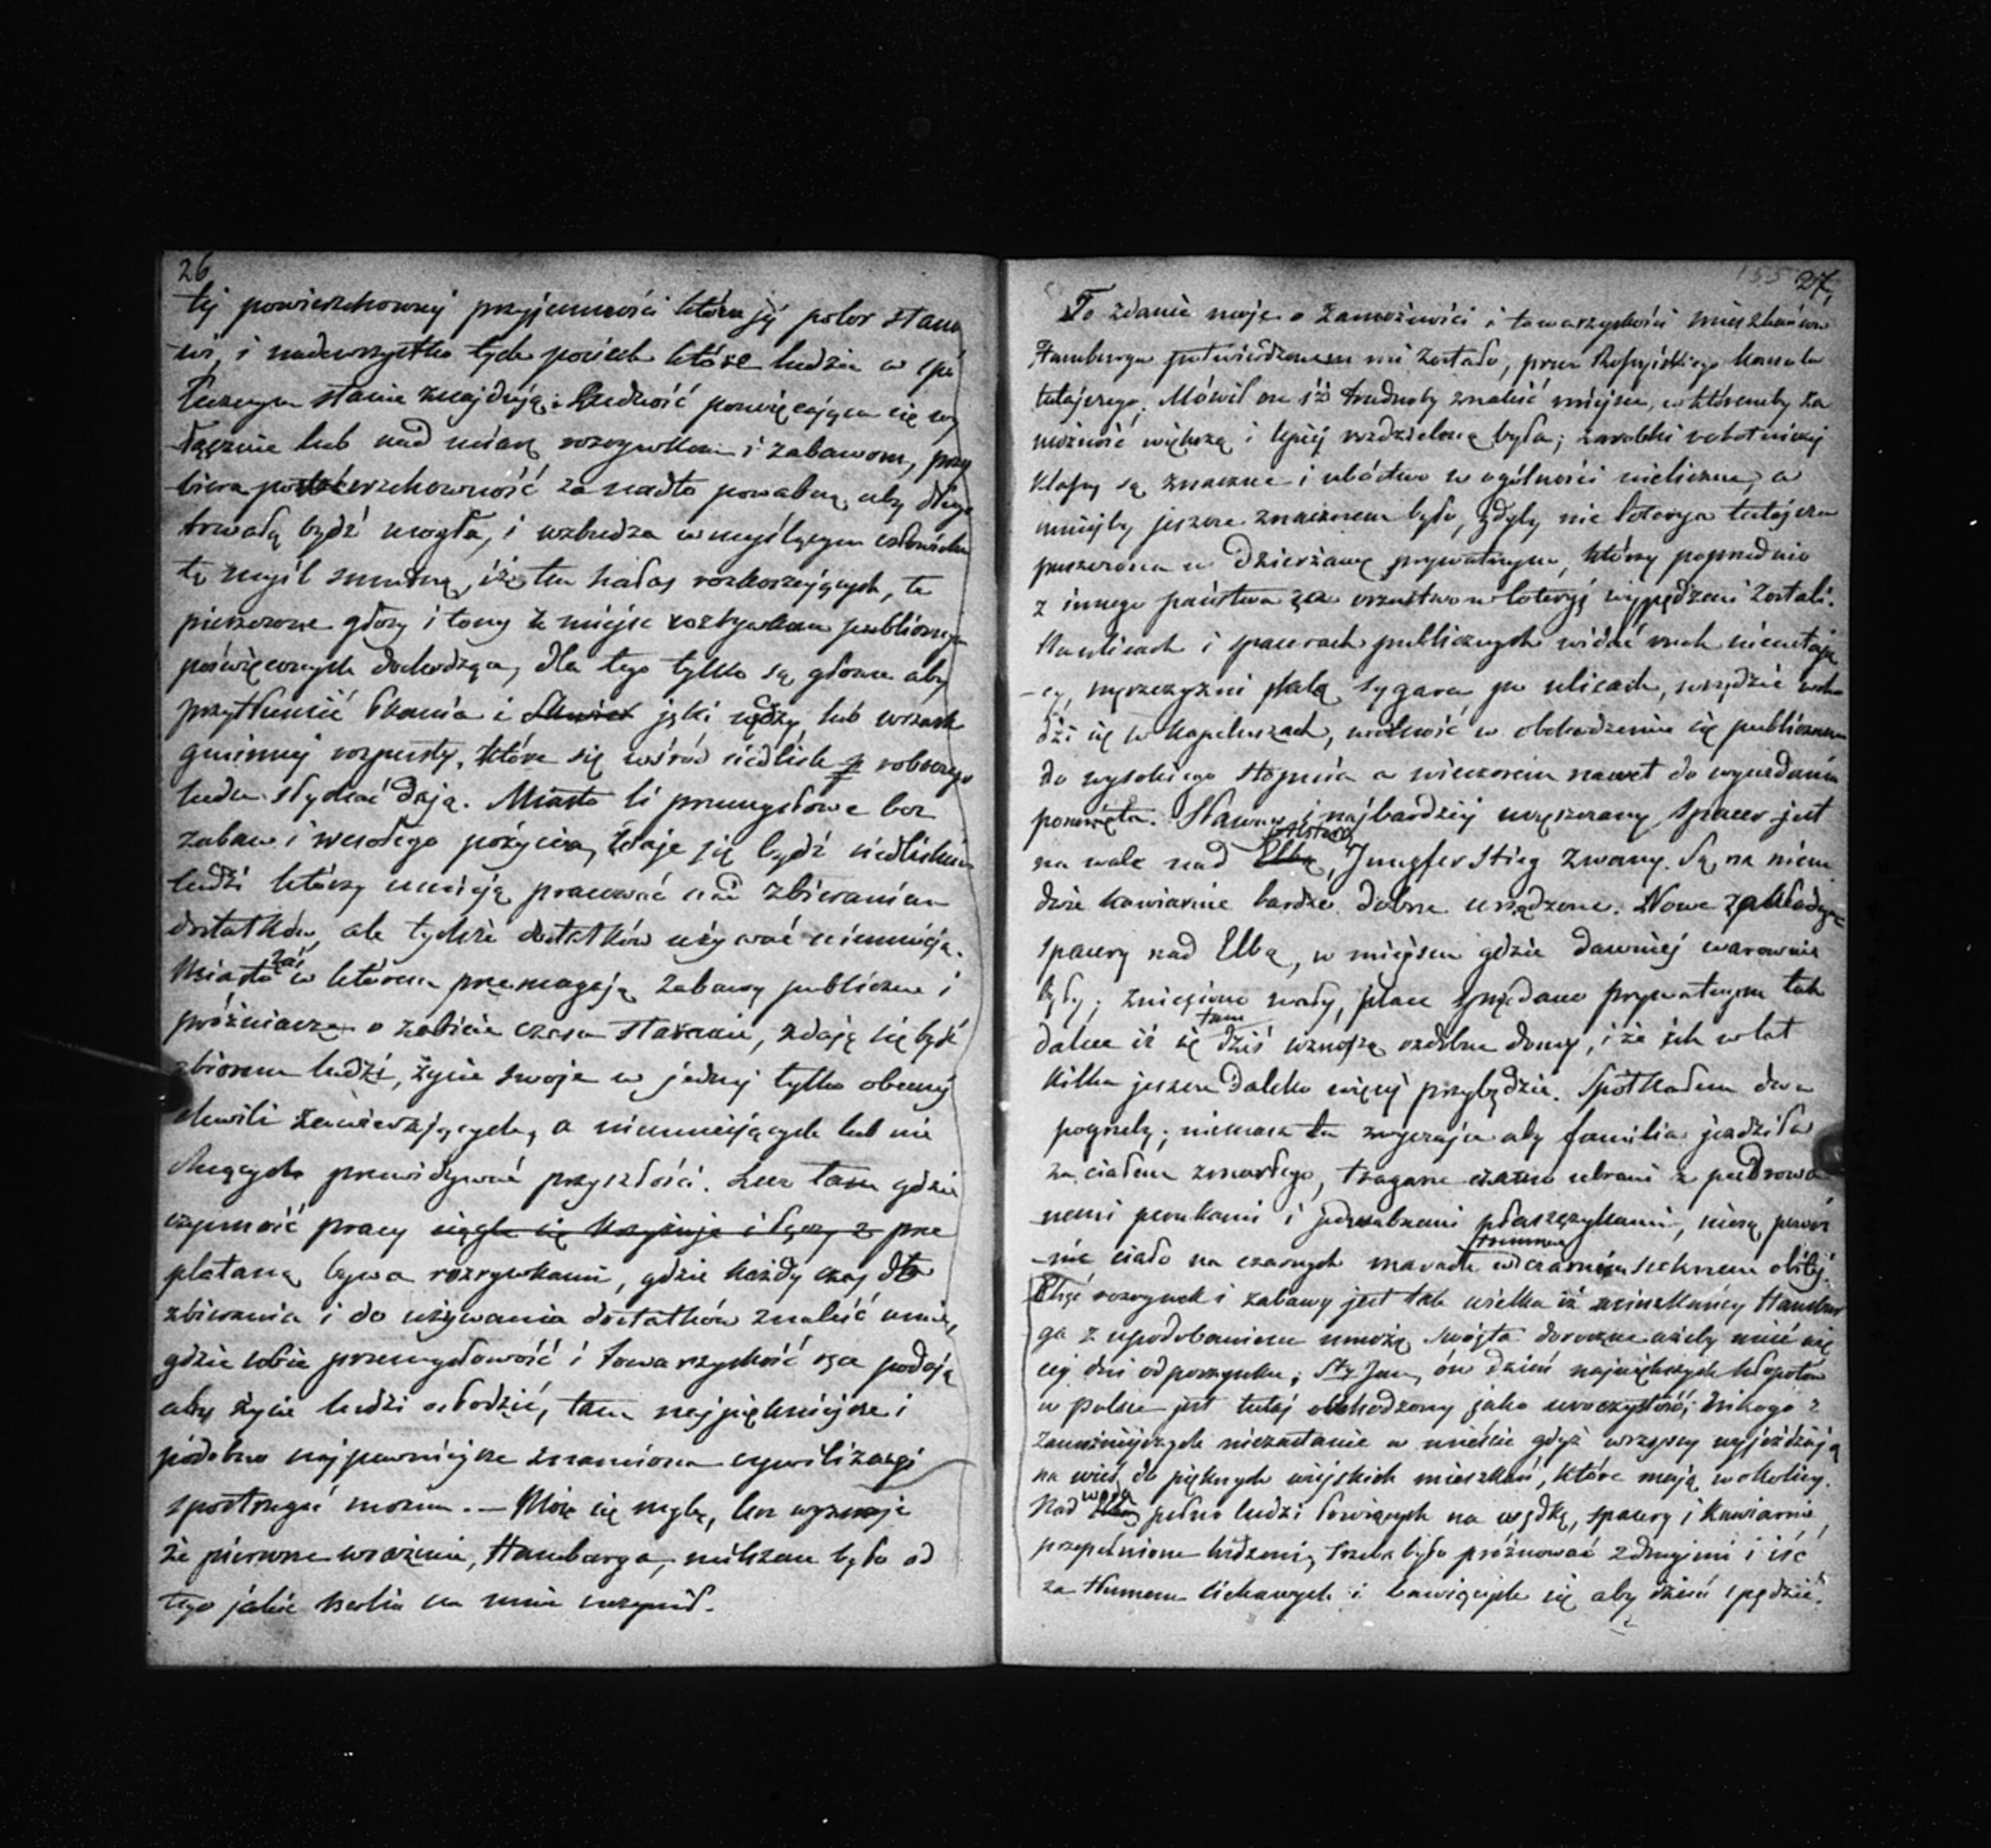 26
tej powierzchownej przyjemności która jej polor stano
wi, i nadewszystko tych pociech które ludzie w spó
łecznym stanie znajdują. Ludność poświęcająca się wy
łącznie lub nad miarę rozrywkom i zabawom, przy
biera powierzchowność zanadto powabną aby długo
trwałą bydź mogła, i wzbudza w myślącym człowieku
tę myśl smutną, iż ten hałas rozkoszujących, te
pieszczone głosy i tony z miejsc rozrywkom publicznym
poświęconych dochodzące, dla tego tylko są głosne aby
przytłumić łkania i jęki nędzy lub wrzask
gminnej rozpusty, które się wśród siedlisk roboczego
ludu słyszeć dają. Miasto li przemysłowe bez
zabaw i wesołego pożycia, zdaje się bydź siedliskiem
ludzi którzy umieją pracować nad zbieraniem
dostatków, ale tychże dostatków używać nieumieją.
Miasto zaś w którem przemagają zabawy publiczne i
próżniacze o zabicie czasu staranie, zdają się bydź
zbiorem ludzi, życie swoje w jednej tylko obecnej
chwili zawierających, a nieumiejących lub nie
chcących przewidywać przyszłości. Lecz tam gdzie
czynność pracy ciągle się krzyżuje i łączy z prze
plataną bywa rozrywkami, gdzie każdy czas do
zbierania i do używania dostatków znaleść umie,
gdzie sobie przemysłowość i towarzyskość ręce podają
aby życie ludzi osłodzić, tam najpiękniejsze i
podobno najpewniejsze znamiona cywilizacyi
spostrzegać można. — Może się mylę, lecz wyznaję
że pierwsze wrażenie, Hamburga, milszem było od
tego jakie Berlin na mnie uczynił.
27,
To zdanie moje o zamożności i towarzyskości mieszkańców
Hamburga potwierdzonem mi zostało, przez Rossyiskiego konsula
tutejszego. Mówił on iż trudnoby znaleść miejsce, w któremby za
możność większą i lepiej rozdzieloną była; zarobki robotniczej
klassy są znaczne i ubóstwo w ogólności nieliczne, a
mniejby jeszcze znacznem było, gdyby nie loterya tutejsza
puszczona w dzierżawę prywatnym, którzy poprzednio
z innego państwa za oszustwo w loteryi wypędzeni zostali.
Na ulicach i spacerach publicznych widać ruch nieustają
-cy, mężczyzni palą cygara po ulicach, wszędzie cho
dzi się w kapeluszach, wolność w obchodzeniu się publicznem
do wysokiego stopnia a wieczorem nawet do wyuzdania
posunięta. Sławny i najbardziej uczęszczany spacer jest
na wale nad Elbą Alsterą, Jungfer Stieg zwany. Są na niem
dwie kawiarnie bardzo dobrze urządzone. Nowe zakładają
spacery nad Elbą, w miejscu gdzie dawniej warownie
były; zniesiono wały, place sprzedano prywatnym tak
dalece iż się tam dziś wznoszą ozdobne domy, i że ich w lat
kilka jeszcze daleko więcej przybędzie. Spotkałem dwa
pogrzeby; niemasz tu zwyczaju aby familia jezdziła
za ciałem zmarłego, tragarze czarno ubrani z pudrowa
nemi perukami i jedwabnemi płaszczykami, niosą pewne
-nie ciało na czarnych marach w trumnie czarnem suknem obitej.
Chęć rozrywek i zabawy jest tak wielka iż mieszkańcy Hambur
ga z upodobaniem mnożą święta doroczne ażeby mieć wię
cej dni odpoczynku; Sty Jan, ów dzień największych kłopotów
w Polsce jest tutaj obchodzony jako uroczystość; nikogo z
zamożniejszych niezastanie w mieście gdyż wszyscy wyjeżdzają
na wieś do pięknych wiejskich mieszkań, które mają w okolicy.
Nad wodą pełno ludzi łowiących na wędkę, spacery i kawiarnie
przepełnione ludzmi, trzeba było próżnować z drugimi i iść
za tłumem ciekawych i bawiących się aby dzień spędzić.